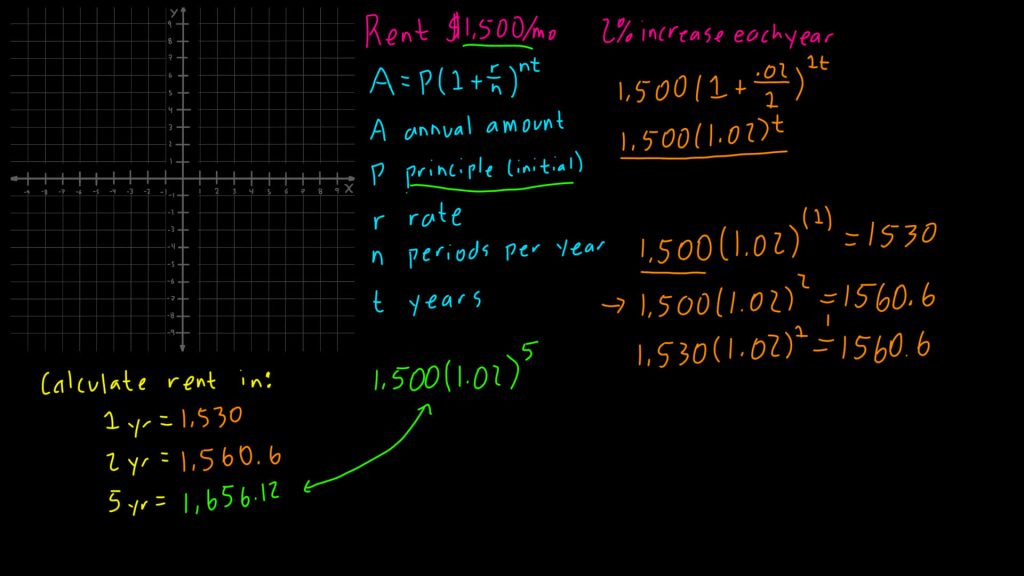 Y
X
Rent $1,500/mo
2% increase each year
A = P(1 + r/n)^nt
A annual amount
P principle (initial)
r rate
n periods per year
t years
1,500(1 + .02/2)^2t
1,500(1.02)^t
1,500(1.02)^(1) = 1530
→ 1,500(1.02)^2 = 1560.6
1,530(1.02)^2 1 = 1560.6
1,500(1.02)^5
Calculate rent in:
1 yr = 1,530
2 yr = 1,560.6
5 yr = 1,656.12